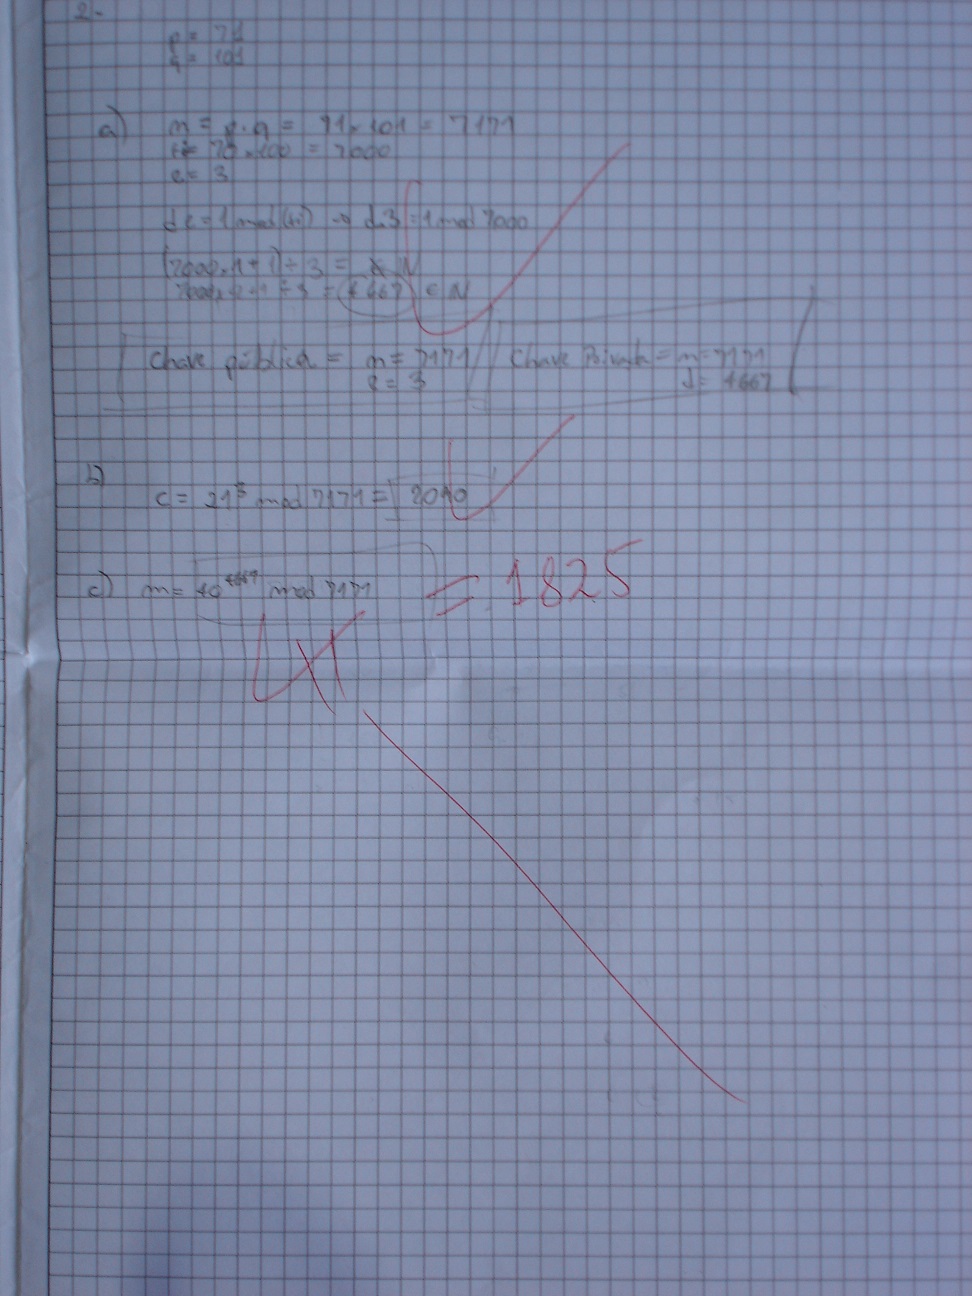 2-
p = 71
q = 101
a) n = p.q = 71 x 101 = 7171
= 70 x 100 = 7000
e = 3
de = 1 mod (tri) → d.3 = 1 mod 7000
(7000.1+1) ÷ 3 = N
7000.2+1 ÷ 3 = 4667 ∈ N
Chave pública = n = 7171 Chave Privada = n = 7171
e = 3 d = 4667
b)
c = 21³ mod 7171 = 2090
c) m = 10⁴⁶⁶⁷ mod 7171 = 1825